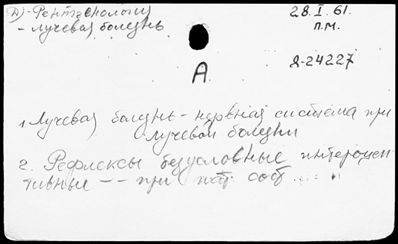 (А)-Рентгенология
- лучевая болезнь
28.I.61.
п.м.
Я-24227
А
1. Лучевая болезнь - нервная система при
лучевой болезни
2. Рефлексы безусловные интероцеп
тивные -- при